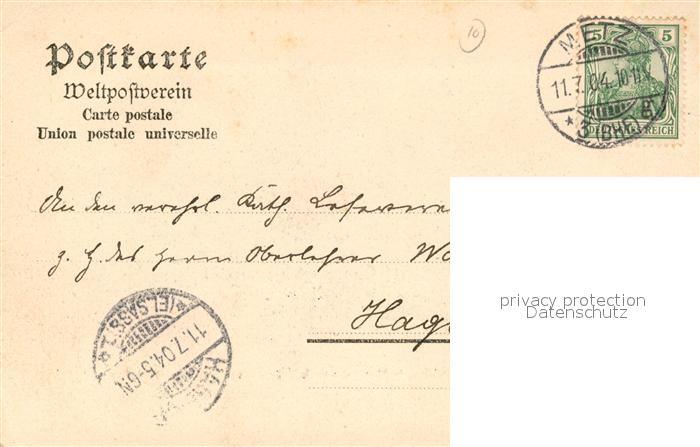 Postkarte
Weltpostverein
Carte postale
Union postale universelle
10
METZ
11.7.04.10-11V.
* 3 (BHF) g
5 5
DEUTSCHES REICH
An den verehrl. Kath. Lesevere
z. H. des Herrn Oberlehrer Wo
Hag
HA
11.7.04.5-6N
*(ELSASS) 1*
privacy protection
Datenschutz